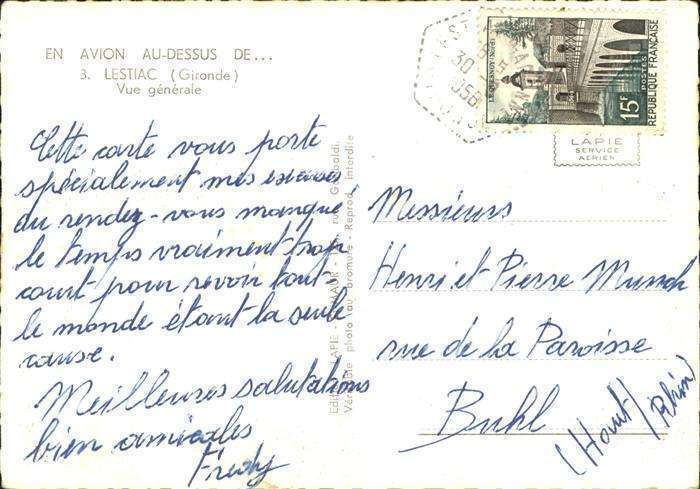 EN AVION AU-DESSUS DE...
3. LESTIAC (Gironde)
Vue générale
Cette carte vous porte
spécialement mes excuses
du rendez-vous manqué,
le temps vraiment trop
court pour revoir tout
le monde étant la seule
cause.
Meilleures salutations
bien amicales
Fredy
LAPIE
Véritable photo au bromure - Reprod. interdite
LE QUESNOY (Nord)
15F
POSTES
REPUBLIQUE FRANÇAISE
30
LAPIE
SERVICE
AERIEN
Messieurs
Henri et Pierre Munch
rue de la Paroisse
Buhl
(Haut/Rhin)